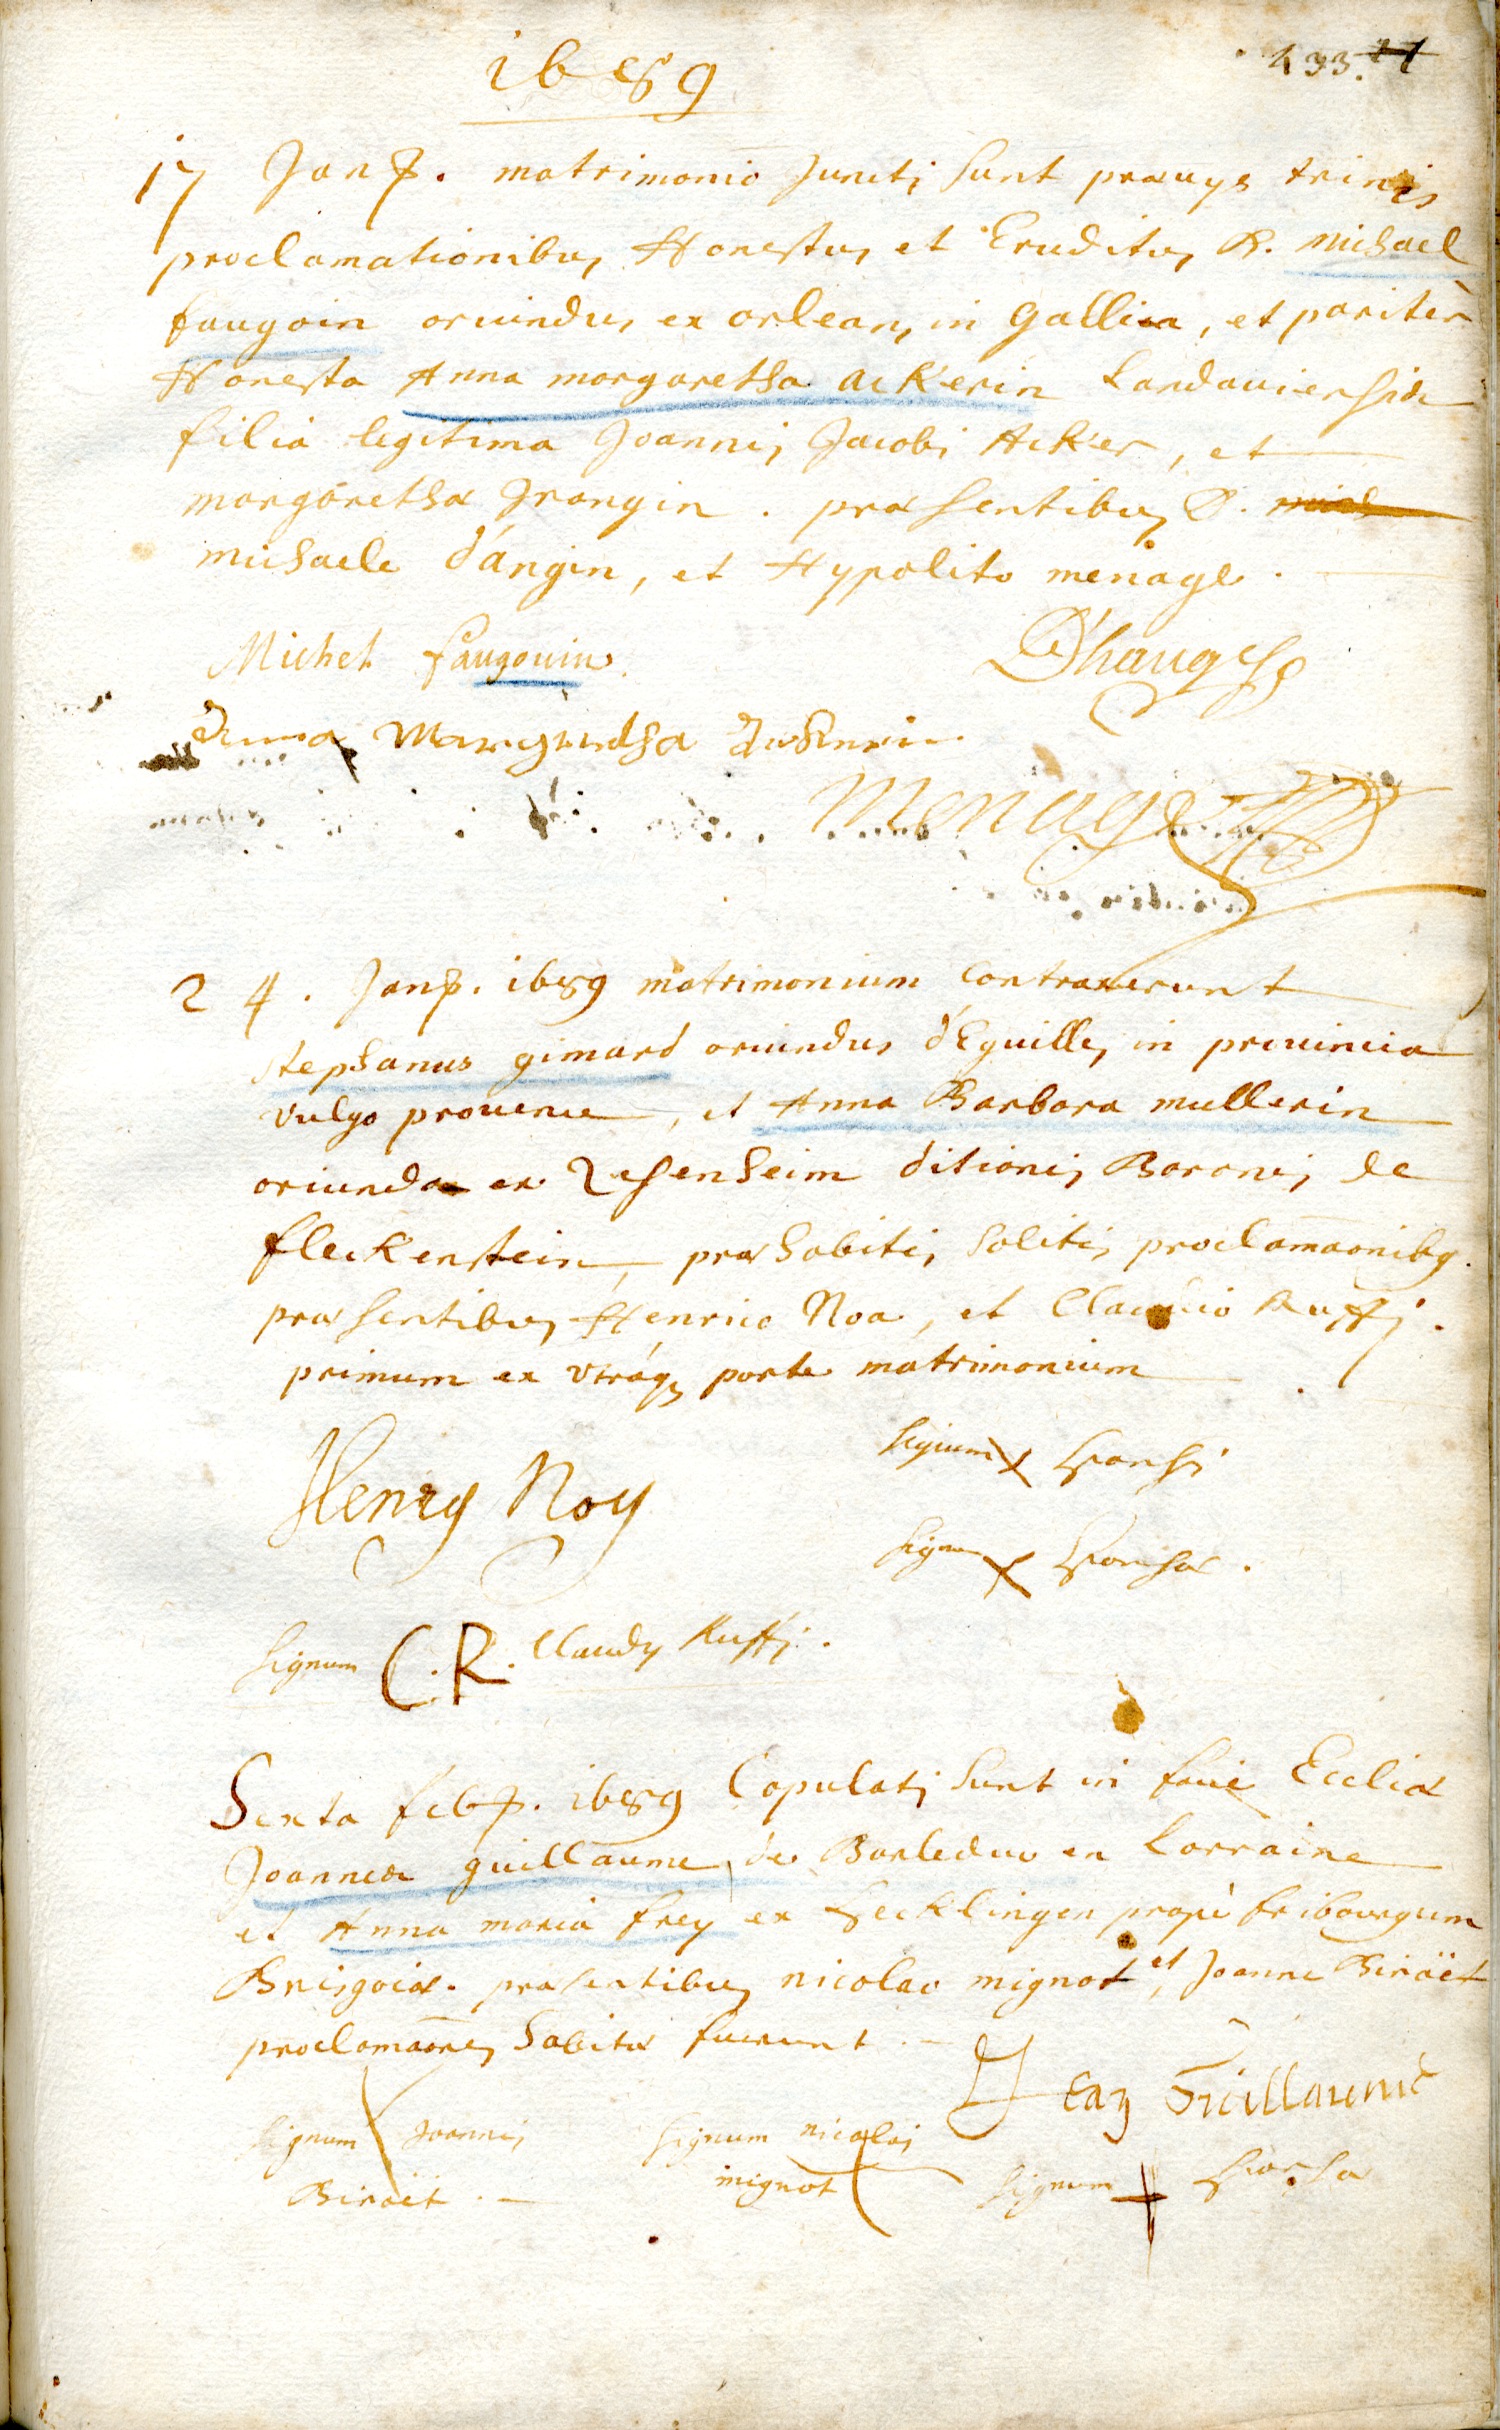 1689
433.
17 Janr. matrimonio Juncti sunt praevys trinis
proclamationibus Honestus et Eruditus D. Michael
faugoin oriundus ex orleans in Gallia, et pariter
Honesta Anna margaretha Ackerin Landaviensis
filia legitima Joannis Jacobi Acker, et
margaretha Grangin. praesentibus D.
michaele d'angin, et Hypolito menage.
Michel faugouin
Anna Margretha
Menage
24. Janr. 1689 matrimonium contraxerunt
stephanus gimard oriundus d'Eguilles in provincia
vulgo provence, et Anna Barbara mullerin
oriunda ex ditionis Baronis de
fleckenstein, praehabitis solitis proclamaonibq.
praesentibus Henrico Noa, et Claudio Ruffi.
primum ex utráq3 parte matrimonium
signum X sponsi
Henry Noy
signum X sponsae.
signum C.R. Claudy Ruffi.
Sexta febr. 1689 Copulati sunt in facie Eccliae
Joannes guillaume de Barleduc en Lorraine
et Anna maria frey ex Hecklingen propè fribourgum
Brisgoiae. praesentibus nicolao mignot, et Joanne Biraët
proclamaones habitae fuerunt.
Jean Guillaume
signum Joannis signum nicolai
Biraët. mignot signum + sponsa